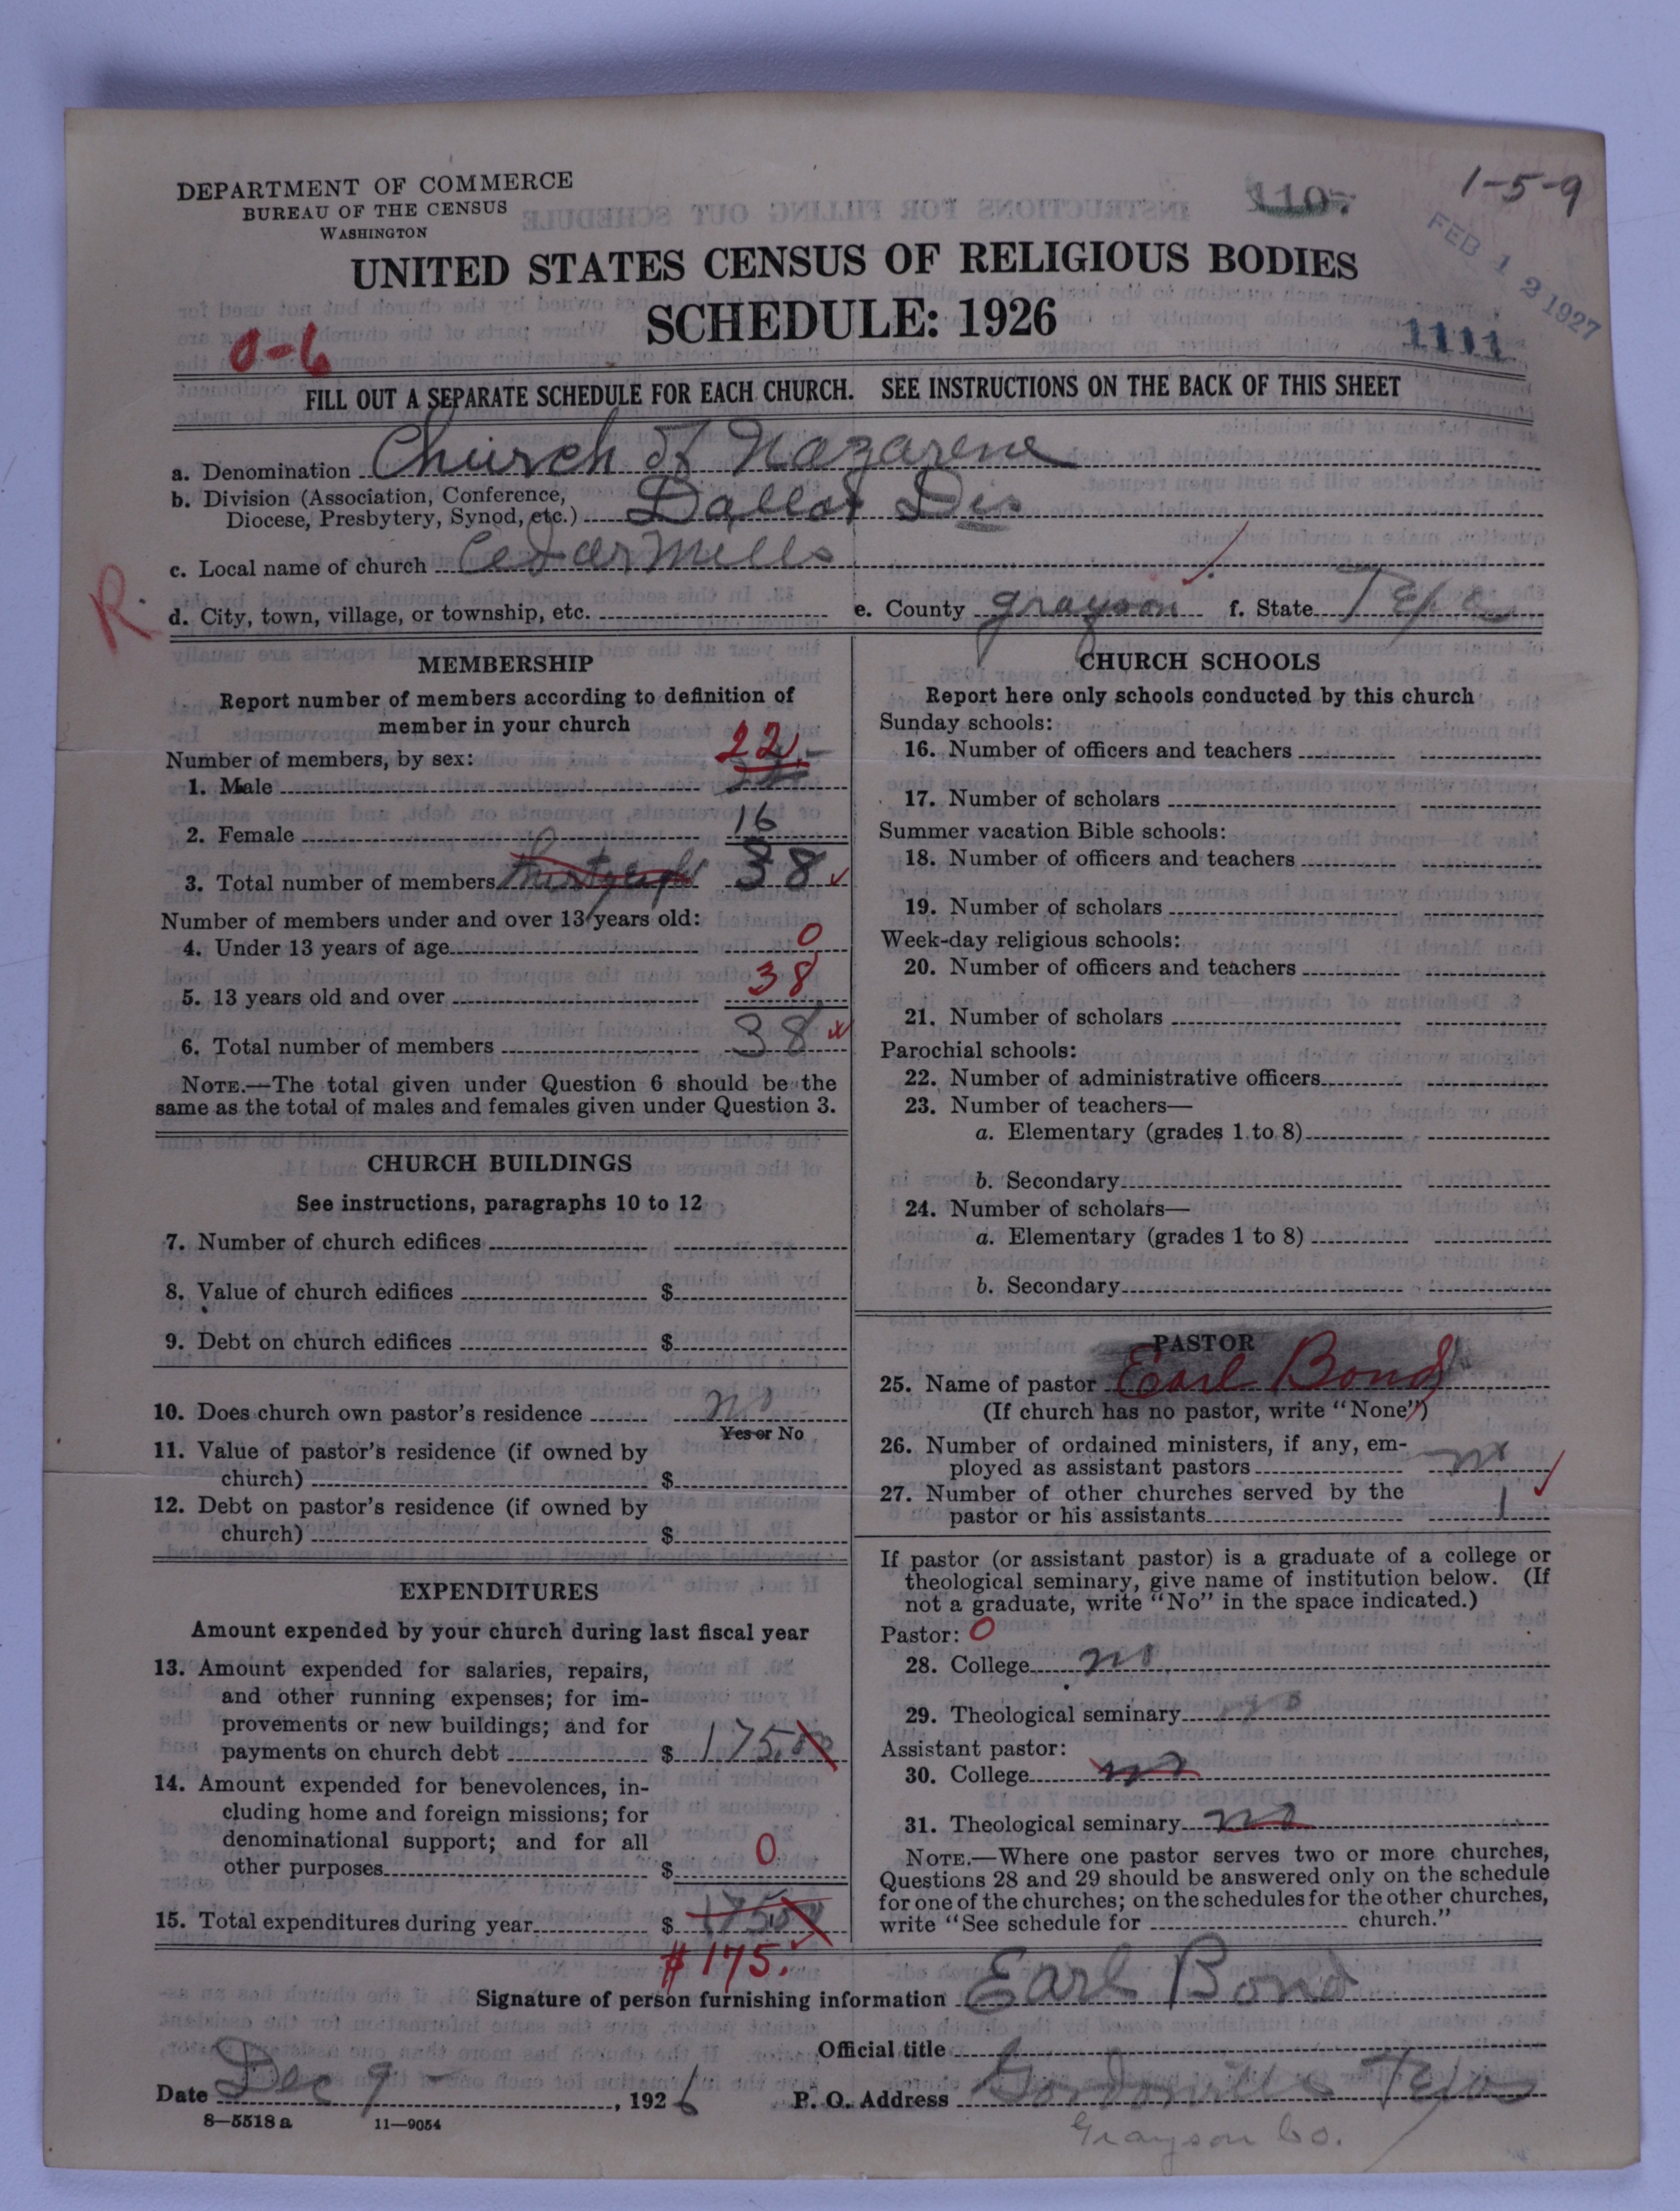 DEPARTMENT OF COMMERCE
BUREAU OF THE CENSUS
WASHINGTON
110.
1-5-9
FEB 12 1927
UNITED STATES CENSUS OF RELIGIOUS BODIES
SCHEDULE: 1926
0-6
1111
FILL OUT A SEPARATE SCHEDULE FOR EACH CHURCH. SEE INSTRUCTIONS ON THE BACK OF THIS SHEET
a. Denomination Church of Nazarene
b. Division (Association, Conference,
Diocese, Presbytery, Synod, etc.) Dallas Dis
c. Local name of church Cedar Mills
R.
d. City, town, village, or township, etc. e. County Grayson f. State Texas
MEMBERSHIP
Report number of members according to definition of
member in your church
Number of members, by sex:
1. Male 22
2. Female 16
3. Total number of members 38
Number of members under and over 13 years old:
4. Under 13 years of age 0
5. 13 years old and over 38
6. Total number of members 38
NOTE.—The total given under Question 6 should be the
same as the total of males and females given under Question 3.
CHURCH BUILDINGS
See instructions, paragraphs 10 to 12
7. Number of church edifices
8. Value of church edifices $
9. Debt on church edifices $
10. Does church own pastor's residence no
Yes or No
11. Value of pastor's residence (if owned by
church) $
12. Debt on pastor's residence (if owned by
church) $
EXPENDITURES
Amount expended by your church during last fiscal year
13. Amount expended for salaries, repairs,
and other running expenses; for im-
provements or new buildings; and for
payments on church debt $ 175.00
14. Amount expended for benevolences, in-
cluding home and foreign missions; for
denominational support; and for all
other purposes $ 0
15. Total expenditures during year $ 175.00
$175.
CHURCH SCHOOLS
Report here only schools conducted by this church
Sunday schools:
16. Number of officers and teachers
17. Number of scholars
Summer vacation Bible schools:
18. Number of officers and teachers
19. Number of scholars
Week-day religious schools:
20. Number of officers and teachers
21. Number of scholars
Parochial schools:
22. Number of administrative officers
23. Number of teachers—
a. Elementary (grades 1 to 8)
b. Secondary
24. Number of scholars—
a. Elementary (grades 1 to 8)
b. Secondary
PASTOR
25. Name of pastor Earl Bond
(If church has no pastor, write "None")
26. Number of ordained ministers, if any, em-
ployed as assistant pastors no
27. Number of other churches served by the
pastor or his assistants 1
If pastor (or assistant pastor) is a graduate of a college or
theological seminary, give name of institution below. (If
not a graduate, write "No" in the space indicated.)
Pastor: 0
28. College no
29. Theological seminary no
Assistant pastor:
30. College no
31. Theological seminary no
NOTE.—Where one pastor serves two or more churches,
Questions 28 and 29 should be answered only on the schedule
for one of the churches; on the schedules for the other churches,
write "See schedule for church."
Signature of person furnishing information Earl Bond
Official title
Date Dec 9 - , 1926 P. O. Address Gordonville Texas
8—5518 a 11—9054
Grayson Co.